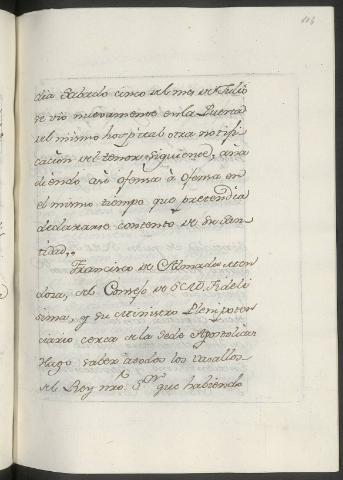 dia Sabado cinco del mes de Julio
se vio nuevamente en la Puerta
del mismo hospital otra notifi
cacion del tenor siguiente, aña
diendo asi ofensa à ofensa en
el mismo tiempo que pretendia
declararse contento de su San-
tidad,,
Francisco de Almada, Men
doza, del Consejo de S.M. Fideli
sima, y su Ministro Plenipoten
ciario cerca de la Sede Apostolica:
Hago saber atodos los vasallos
del Rey nro. Sor. que habiendo